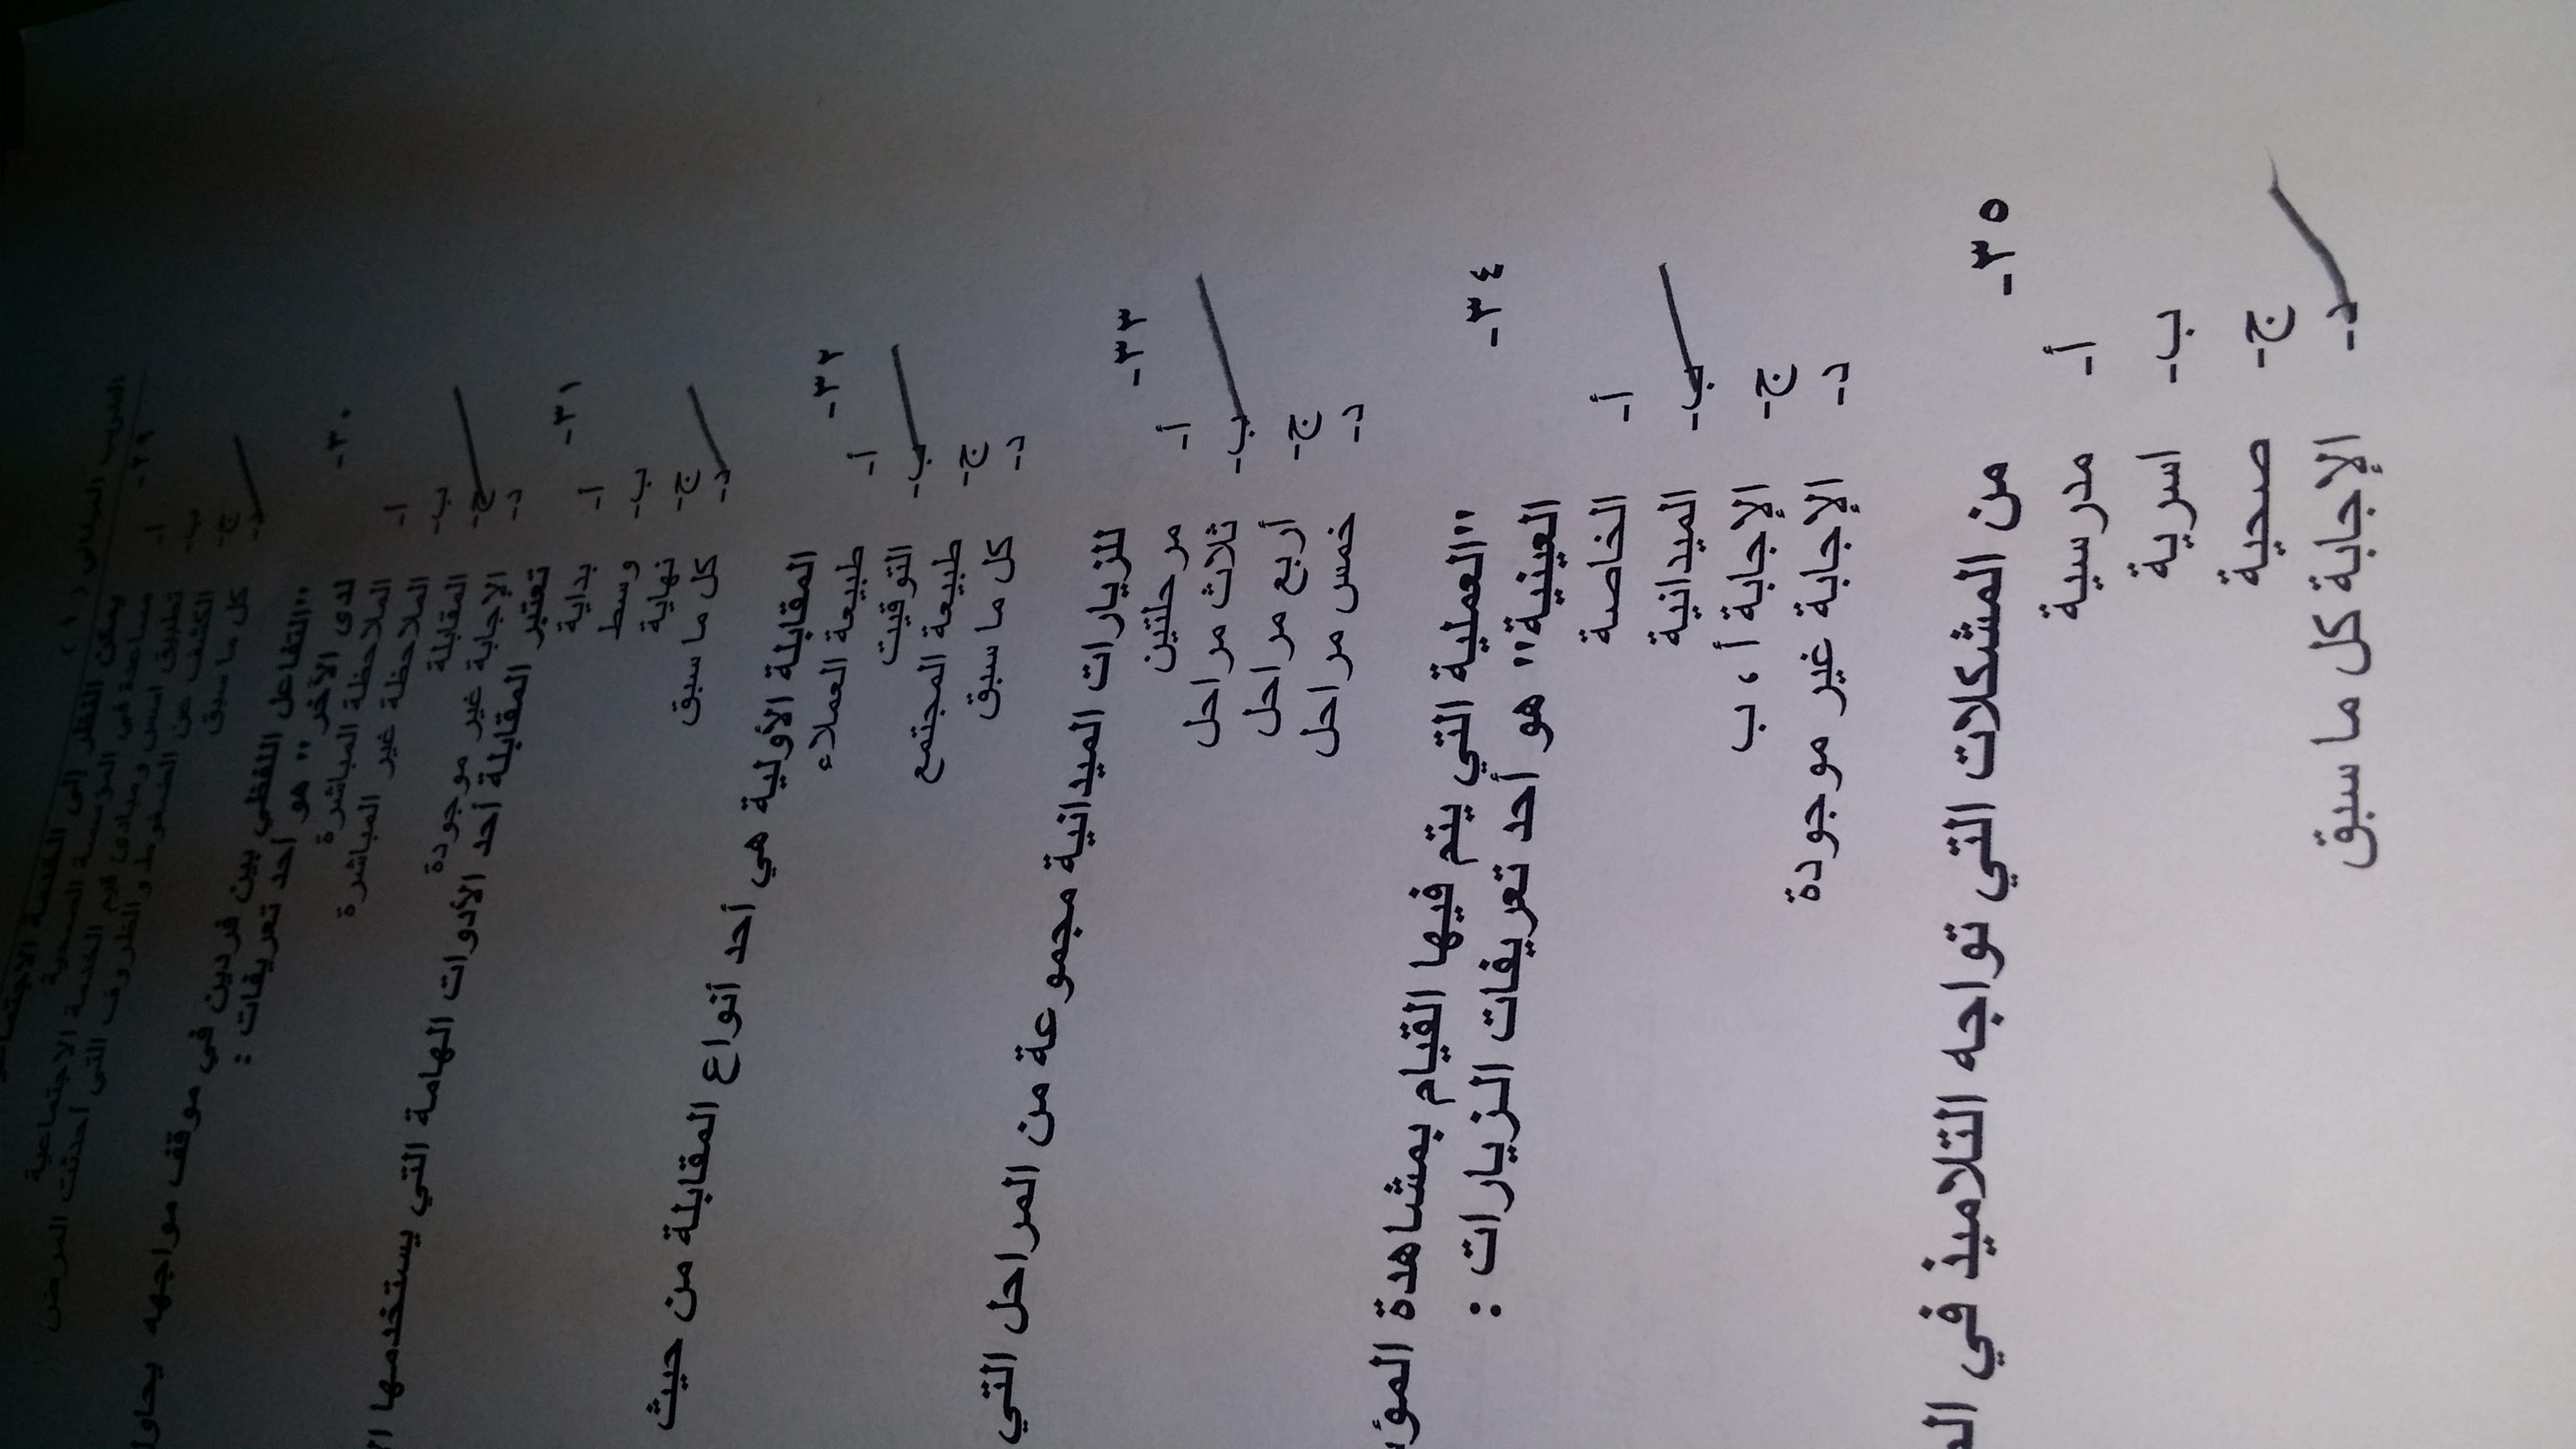 التدريب الميداني (١)
٢٩- يمكن النظر إلى الخدمة الاجتماعية
أ- مساعدة في المؤسسة الصحية
ب- تطبيق اسس ومبادئ قيم الخدمة الاجتماعية
ج- الكشف عن الضغوط والظروف التي احدثت المرض
د- كل ما سبق
٣٠- "التفاعل اللفظي بين فردين في موقف مواجهه يحاول
لدى الأخر" هو أحد تعريفات :
أ- الملاحظة المباشرة
ب- الملاحظة غير المباشرة
ج- المقابلة
د- الإجابة غير موجودة
٣١- تعتبر المقابلة أحد الأدوات الهامة التي يستخدمها
أ- بداية
ب- وسط
ج- نهاية
د- كل ما سبق
٣٢- المقابلة الأولية هي أحد أنواع المقابلة من حيث
أ- طبيعة العملاء
ب- التوقيت
ج- طبيعة المجتمع
د- كل ما سبق
٣٣- للزيارات الميدانية مجموعة من المراحل التي
أ- مرحلتين
ب- ثلاث مراحل
ج- أربع مراحل
د- خمس مراحل
٣٤- "العملية التي يتم فيها القيام بمشاهدة
العينية" هو أحد تعريفات الزيارات :
أ- الخاصة
ب- الميدانية
ج- الإجابة أ ، ب
د- الإجابة غير موجودة
٣٥- من المشكلات التي تواجه التلاميذ في
أ- مدرسية
ب- اسرية
ج- صحية
د- الإجابة كل ما سبق